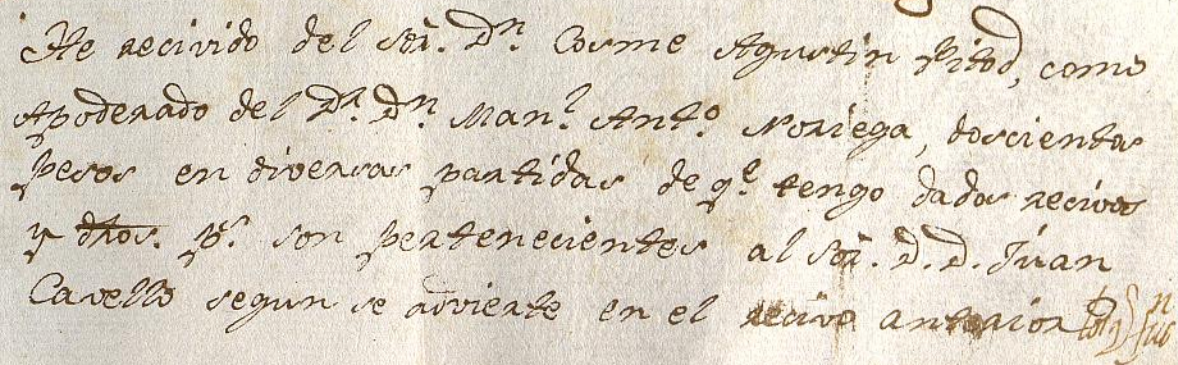 He recivido del Sor. Dn. Cosme Agustin Pitod, como
Apoderado del Dr. Dn. Manl. Anto. Noriega, doscientos
pesos en diversas partidas de qe. tengo dados recivos
y dhos. ps. son pertenecientes al Sor. D. D. Juan
Cavello segun se advierte en el recivo anterior